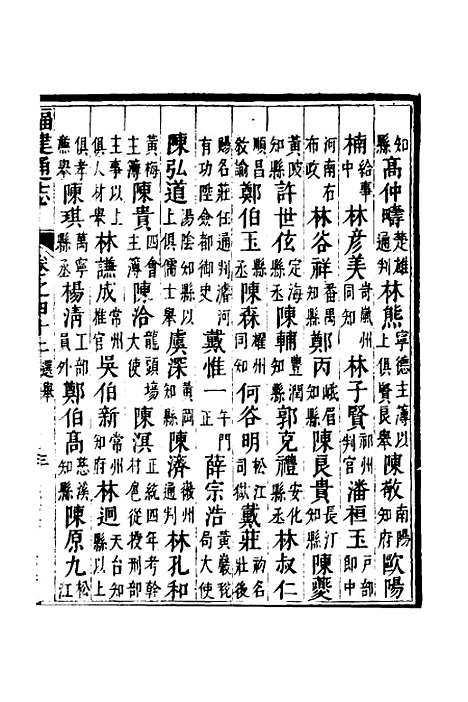 知縣高仲疇楚雄通判林熊寧德主簿以上俱賢良舉陳敬南陽知府歐陽
楠給事中林彥美岢嵐州同知林子賢祁州判官潘桓玉戶部郎中
河南右布政林谷祥番禺知縣鄭丙峨眉知縣陳良貴長汀知縣陳夔
黃陂知縣許世伭定海知縣陳輔豐潤知縣郭克禮安化知縣林叔仁
順昌敎諭鄭伯玉縣丞陳森耀州同知何谷明松江司獄戴莊初名壯後
賜名莊任通判濬河有功陞僉都御史戴惟一午門正薛宗浩黃巖稅局大使
陳弘道湯陰知縣以上俱儒士舉虞深黃岡知縣陳濟徽州通判林孔和
黃梅主簿陳貴四會主簿陳洽龍頭場大使陳淏正統四年考幹辦村色從授刑部
主事以上俱人材舉林謙成常州推官吳伯新常州知府林迥天台知縣以上
俱孝廉舉陳琪萬寧縣丞楊淸工部員外鄭伯高慈溪知縣陳原九松江
福建通志 卷之四十七 選舉